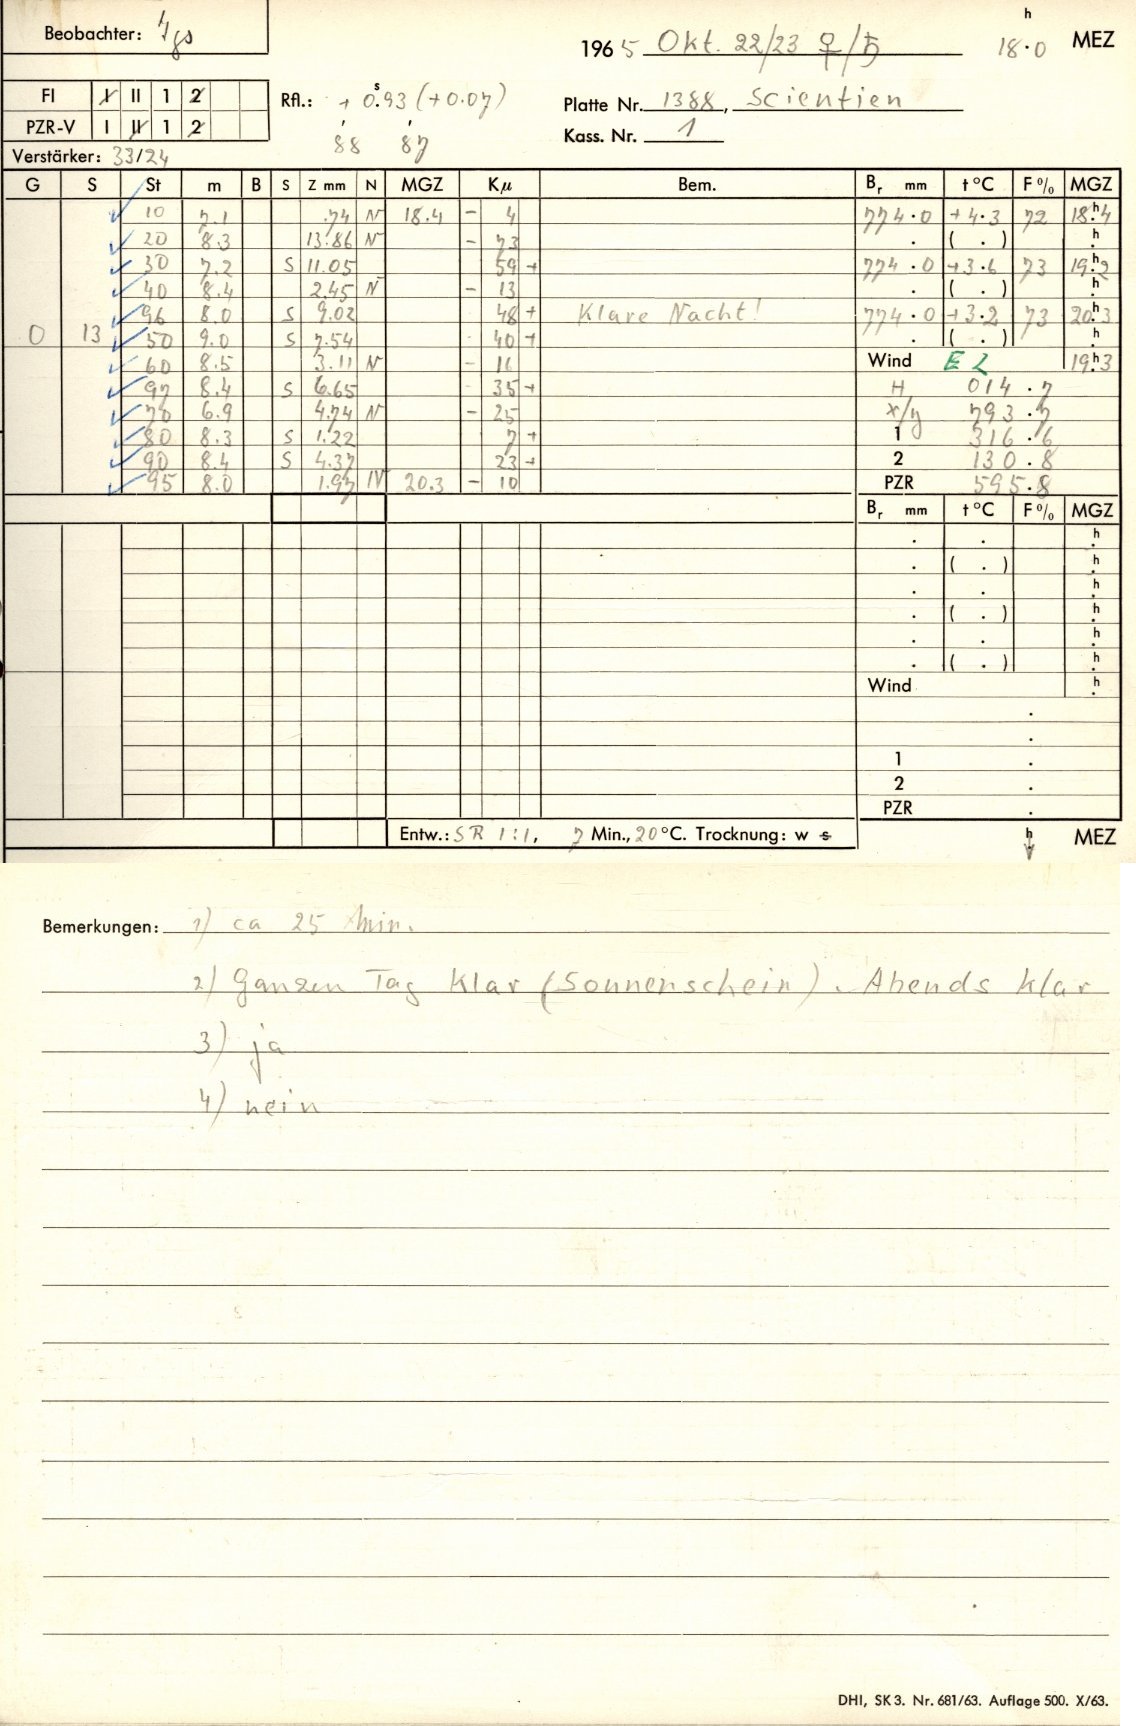 Beobachter:
1965 Okt. 22/23 ♀/♄ 18.0 h MEZ
FI I II 1 2
Rfl.: + 0.93 s (+0.07)
Platte Nr. 1388, Scientien
PZR-V I II 1 2
88 87
Kass. Nr. 1
Verstärker: 33/24
G S St m B S Z mm N MGZ Kμ Bem. Br mm t °C F % MGZ
10 7.1 .74 N 18.4 - 4 774.0 +4.3 72 18.4 h
20 8.3 13.86 N - 73 . ( . ) h
30 7.2 S 11.05 59 + 774.0 +3.6 73 19.2 h
40 8.4 2.45 N - 13 . ( . ) h
96 8.0 S 9.02 48 + Klare Nacht! 774.0 +3.2 73 20.3 h
0 13 50 9.0 S 7.54 40 + . ( . ) h
60 8.5 3.11 N - 16 Wind E 2 19.3 h
97 8.4 S 6.65 35 + H 014.7
70 6.9 4.74 N - 25 x/y 793.7
80 8.3 S 1.22 7 + 1 316.6
90 8.4 S 4.37 23 + 2 130.8
95 8.0 1.97 N 20.3 - 10 PZR 595.8
Br mm t °C F % MGZ
. . h
. ( . ) h
. . h
. ( . ) h
. . h
. ( . ) h
Wind h
.
.
1 .
2 .
PZR .
Entw.: SR 1:1, 7 Min., 20 °C. Trocknung: w s h MEZ
Bemerkungen: 1) ca 25 Min.
2) Ganzen Tag Klar (Sonnenschein). Abends klar
3) ja
4) nein
DHI, SK 3. Nr. 681/63. Auflage 500. X/63.